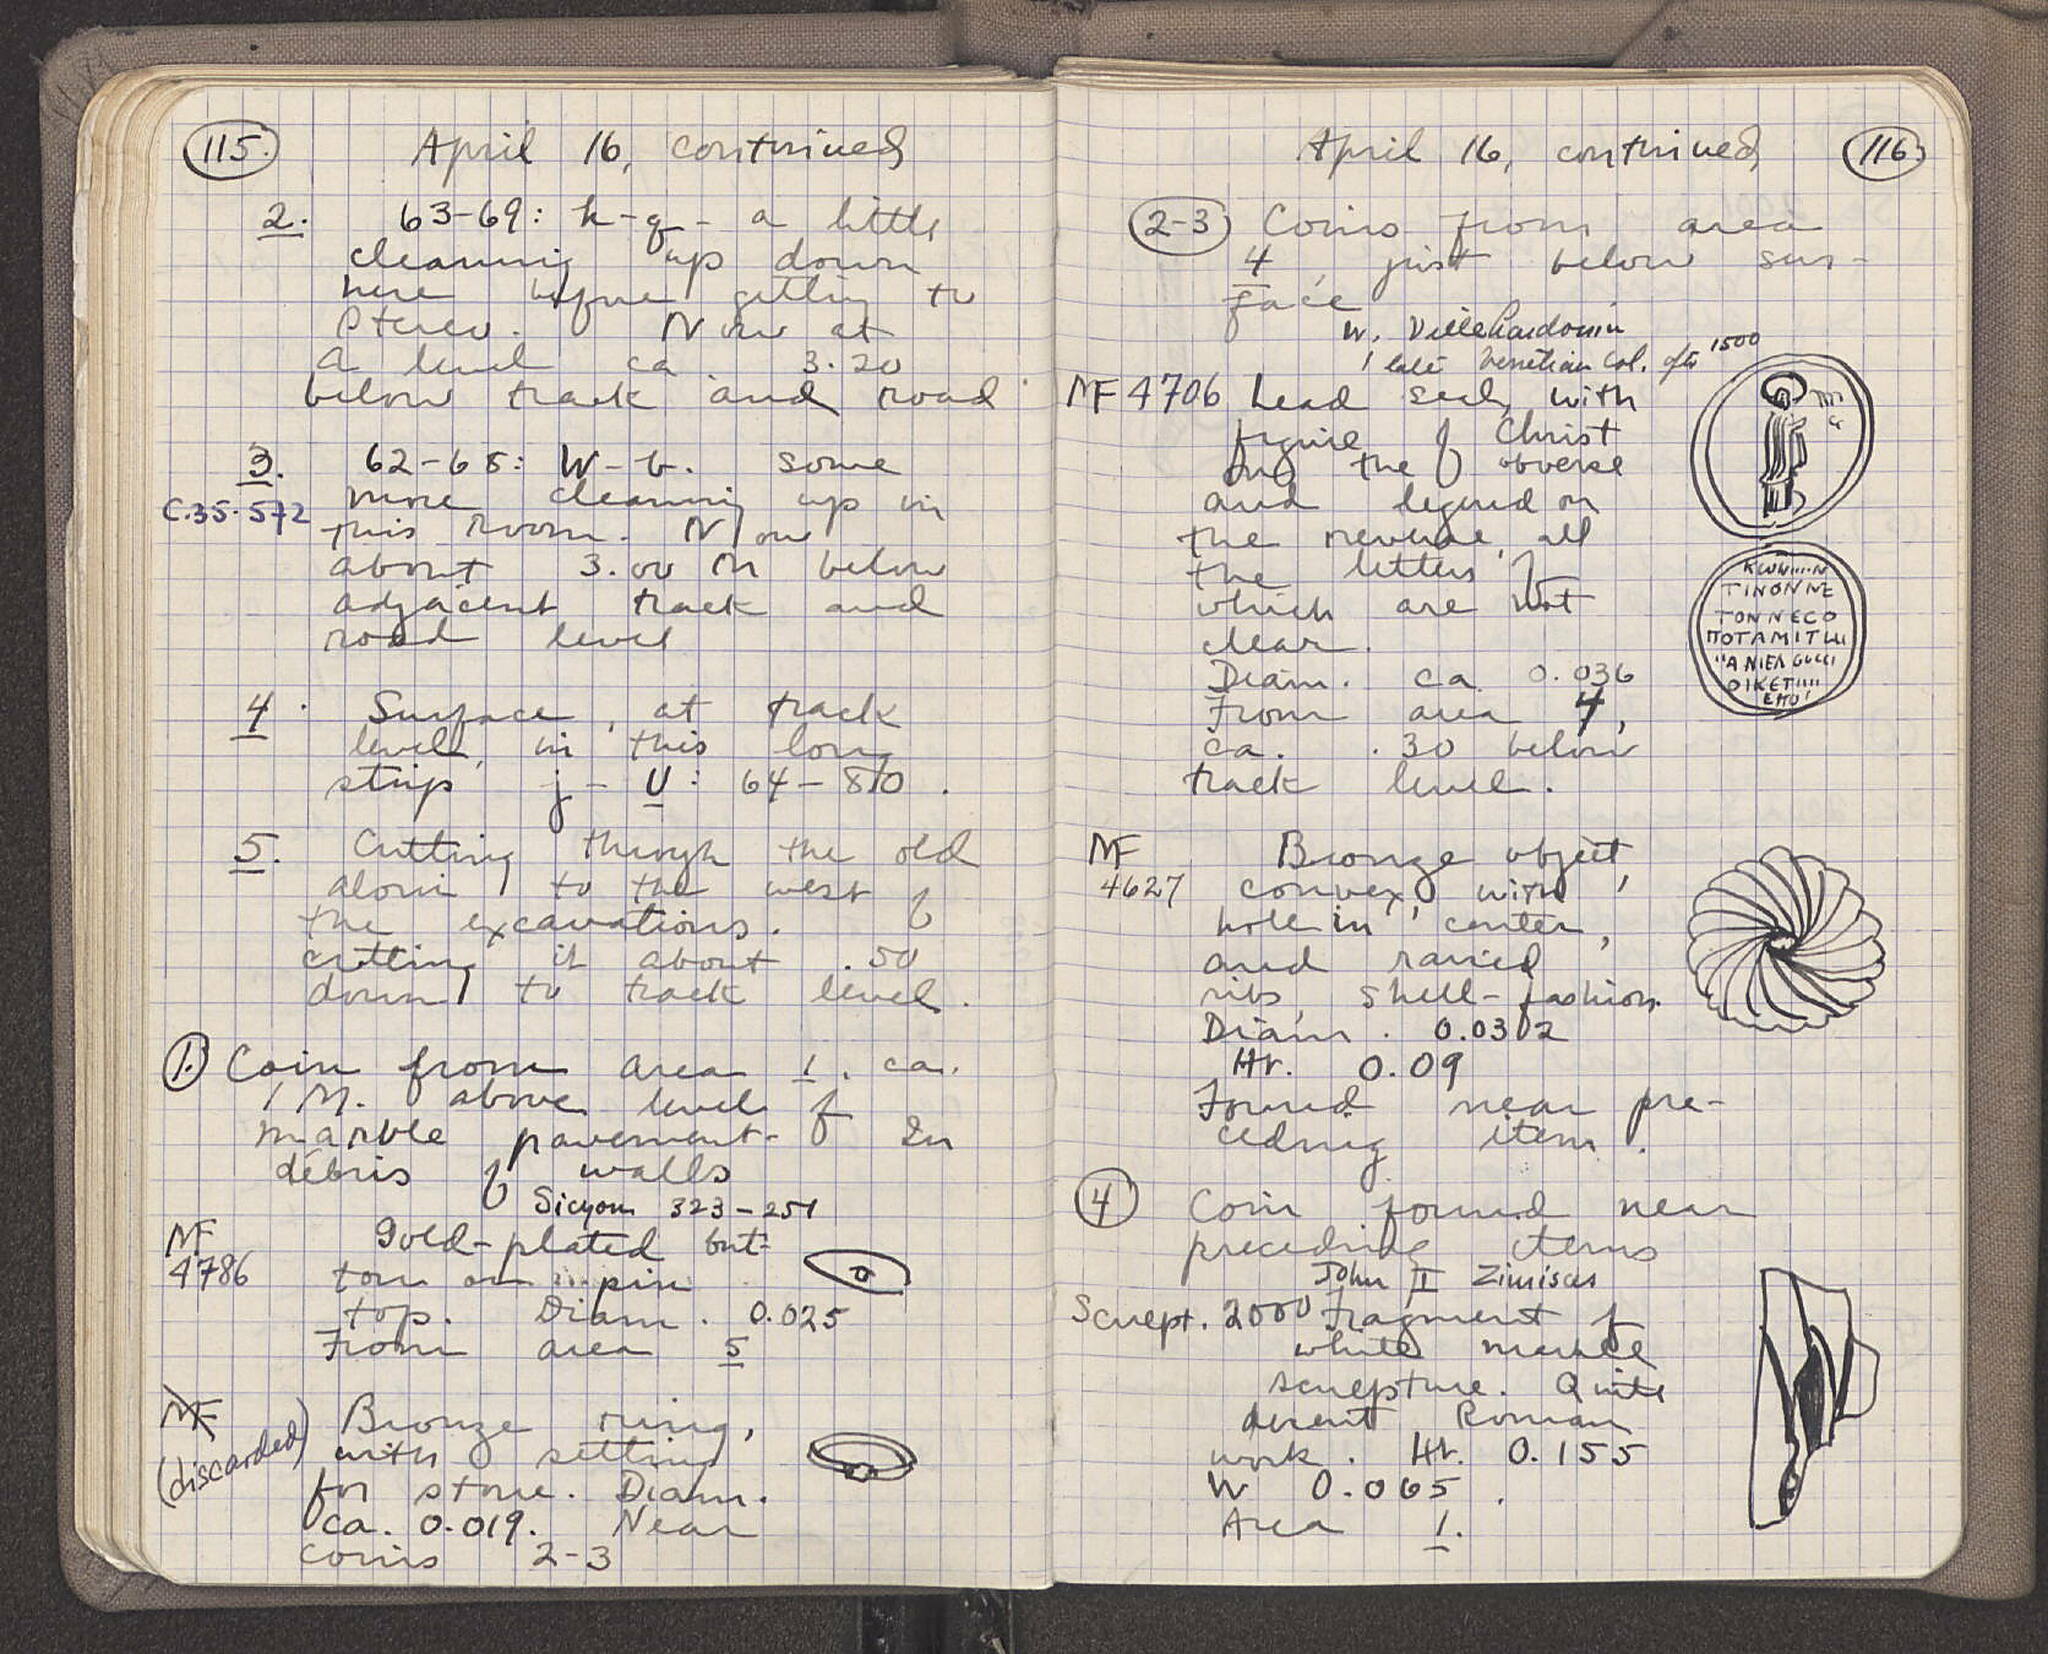 115.
April 16, continued
2. 63-69: k-q - a little
cleaning up down
here before getting to
stereo. Now at
a level ca 3.20
below track and road
3. 62-68: W-b. some
C.35.572
more cleaning up in
this room. Now
about 3.00 M below
adjacent track and
road level
4. Surface, at track
level, in this long
strip j-U: 64-80.
5. Cutting through the old
to the west of
the excavations.
cutting it about .50
down to track level.
1. Coin from area 1. ca.
1 M. above level of
marble pavement. In
débris of walls
Sicyon 323-251
MF 4786
Gold-plated but-
ton or pin
top. Diam. 0.025
From area 5
MF (discarded)
Bronze ring,
with setting
for stone. Diam.
ca. 0.019. Near
coins 2-3
April 16, continued
116
2-3 Coins from area
4, just below sur-
face
W. Villehardouin
1 late Venetian Col. aft 1500
MF 4706 Lead seal, with
figure of Christ
on the obverse
and legend on
the reverse, all
the letters of
which are not
clear.
Diam. ca. 0.036
From area 4,
ca. .30 below
track level.
TINONNE
TONNECO
MF 4627
Bronze object,
convex, with
hole in center,
and raised
ribs, shell-fashion.
Diam. 0.0302
Ht. 0.09
Found near pre-
ceding item.
4 Coin found near
preceding items
John II Zimisces
Sculpt. 2000 Fragment of
white marble
sculpture. Quite
decent Roman
work. Ht. 0.155
W 0.065.
Area 1.